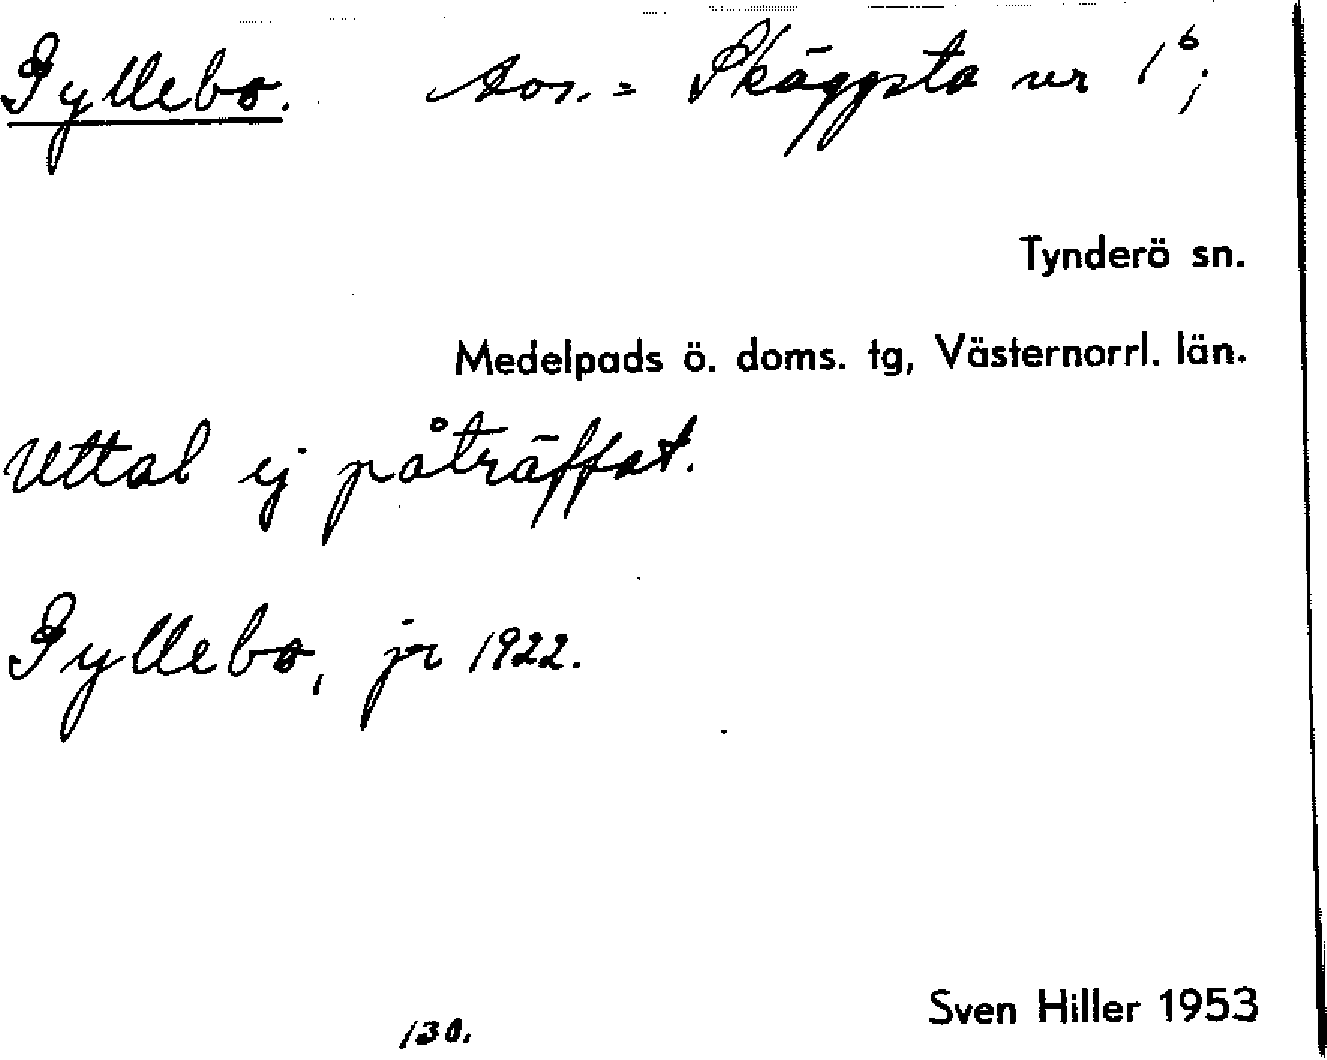 Gyllebo. Avs. = Skäggsta nr 1⁶;
Tynderö sn.
Medelpads ö. doms. tg, Västernorrl. län.
Uttal ej påträffat.
Gyllebo, jr 1922.
Sven Hiller 1953
130.